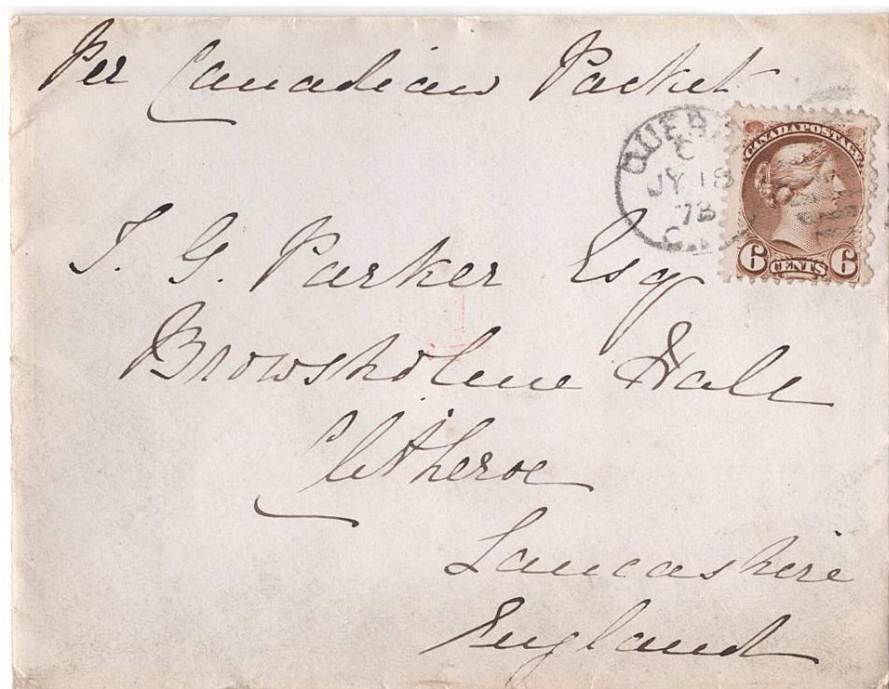 Per Canadian Packet
QUEBEC
C
JY 18
78
CANADA POSTAGE
6 CENTS 6
T. G. Parker Esq
Browsholme Hall
Clitheroe
Lancashire
England